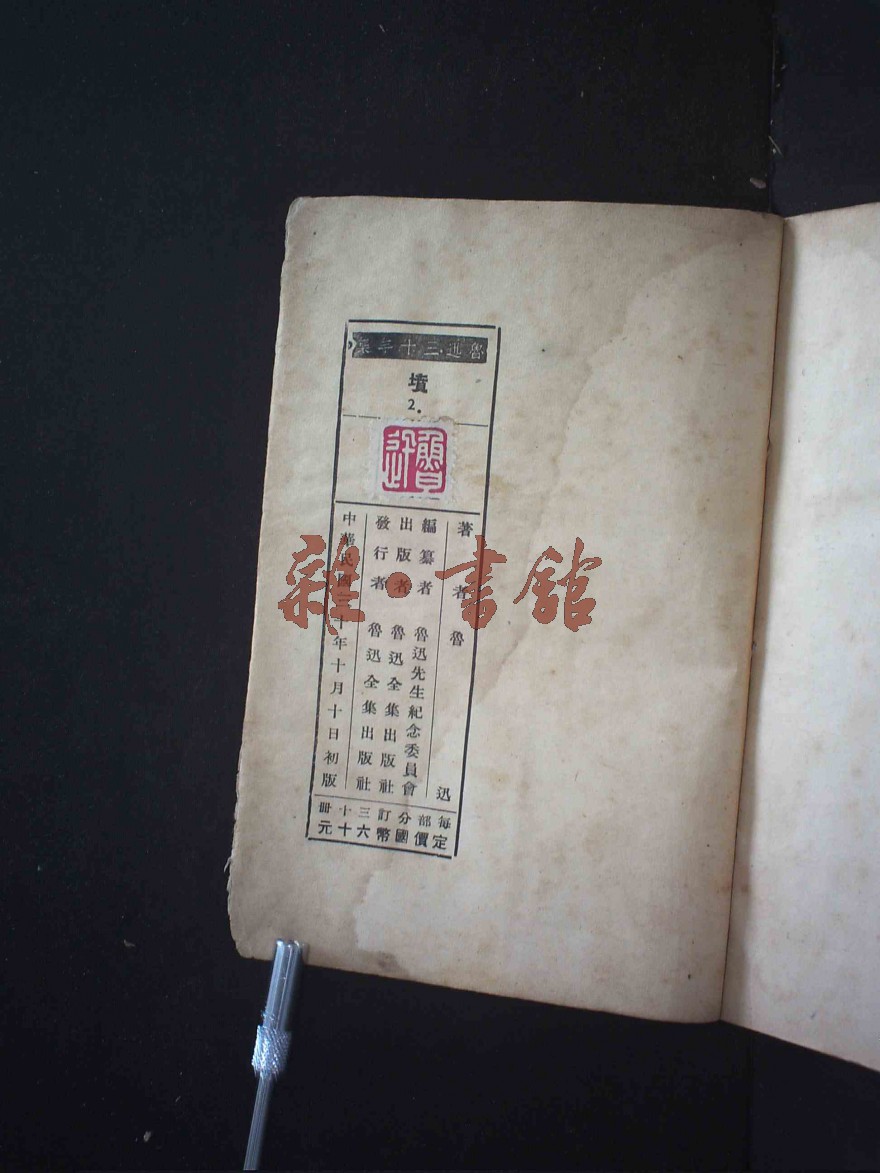 魯迅三十年集
墳
2.
魯迅
著者 魯迅
編纂者 魯迅先生紀念委員會
出版者 魯迅全集出版社
發行者 魯迅全集出版社
中華民國三十年十月十日初版
每部分訂三十冊
定價國幣六十元
雜·書舘